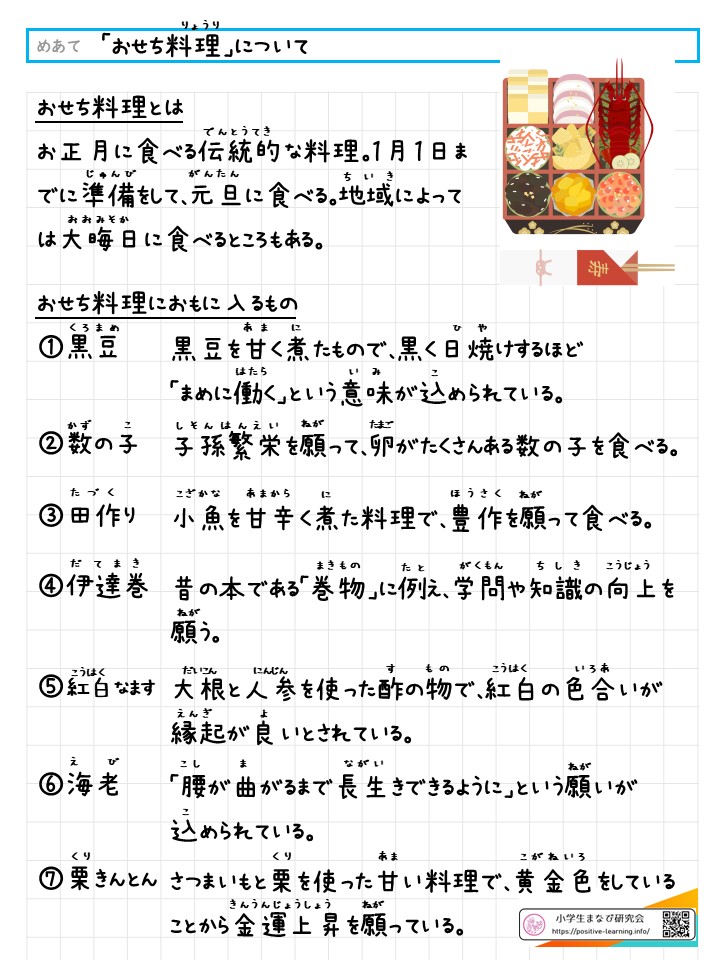 めあて 「おせち料理」について
おせち料理とは
お正月に食べる伝統的な料理。1月1日ま
でに準備をして、元旦に食べる。地域によって
は大晦日に食べるところもある。
おせち料理におもに入るもの
①黒豆 黒豆を甘く煮たもので、黒く日焼けするほど
「まめに働く」という意味が込められている。
②数の子 子孫繁栄を願って、卵がたくさんある数の子を食べる。
③田作り 小魚を甘辛く煮た料理で、豊作を願って食べる。
④伊達巻 昔の本である「巻物」に例え、学問や知識の向上を
願う。
⑤紅白なます 大根と人参を使った酢の物で、紅白の色合いが
縁起が良いとされている。
⑥海老 「腰が曲がるまで長生きできるように」という願いが
込められている。
⑦栗きんとん さつまいもと栗を使った甘い料理で、黄金色をしている
ことから金運上昇を願っている。
小学生まなび研究会
https://positive-learning.info/